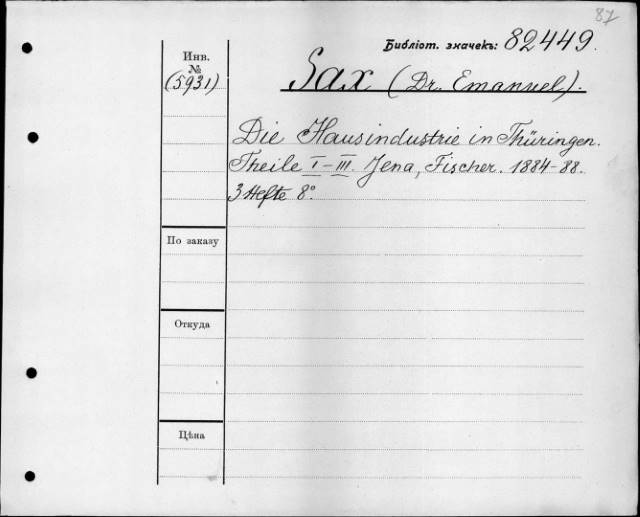 87
Библіот. значекъ: 82449.
Инв.
№
(5931)
Sax (Dr. Emanuel).
Die Hausindustrie in Thüringen.
Theile I-III. Jena, Fischer. 1884-88.
3 Hefte 8°.
По заказу
Откуда
Цѣна